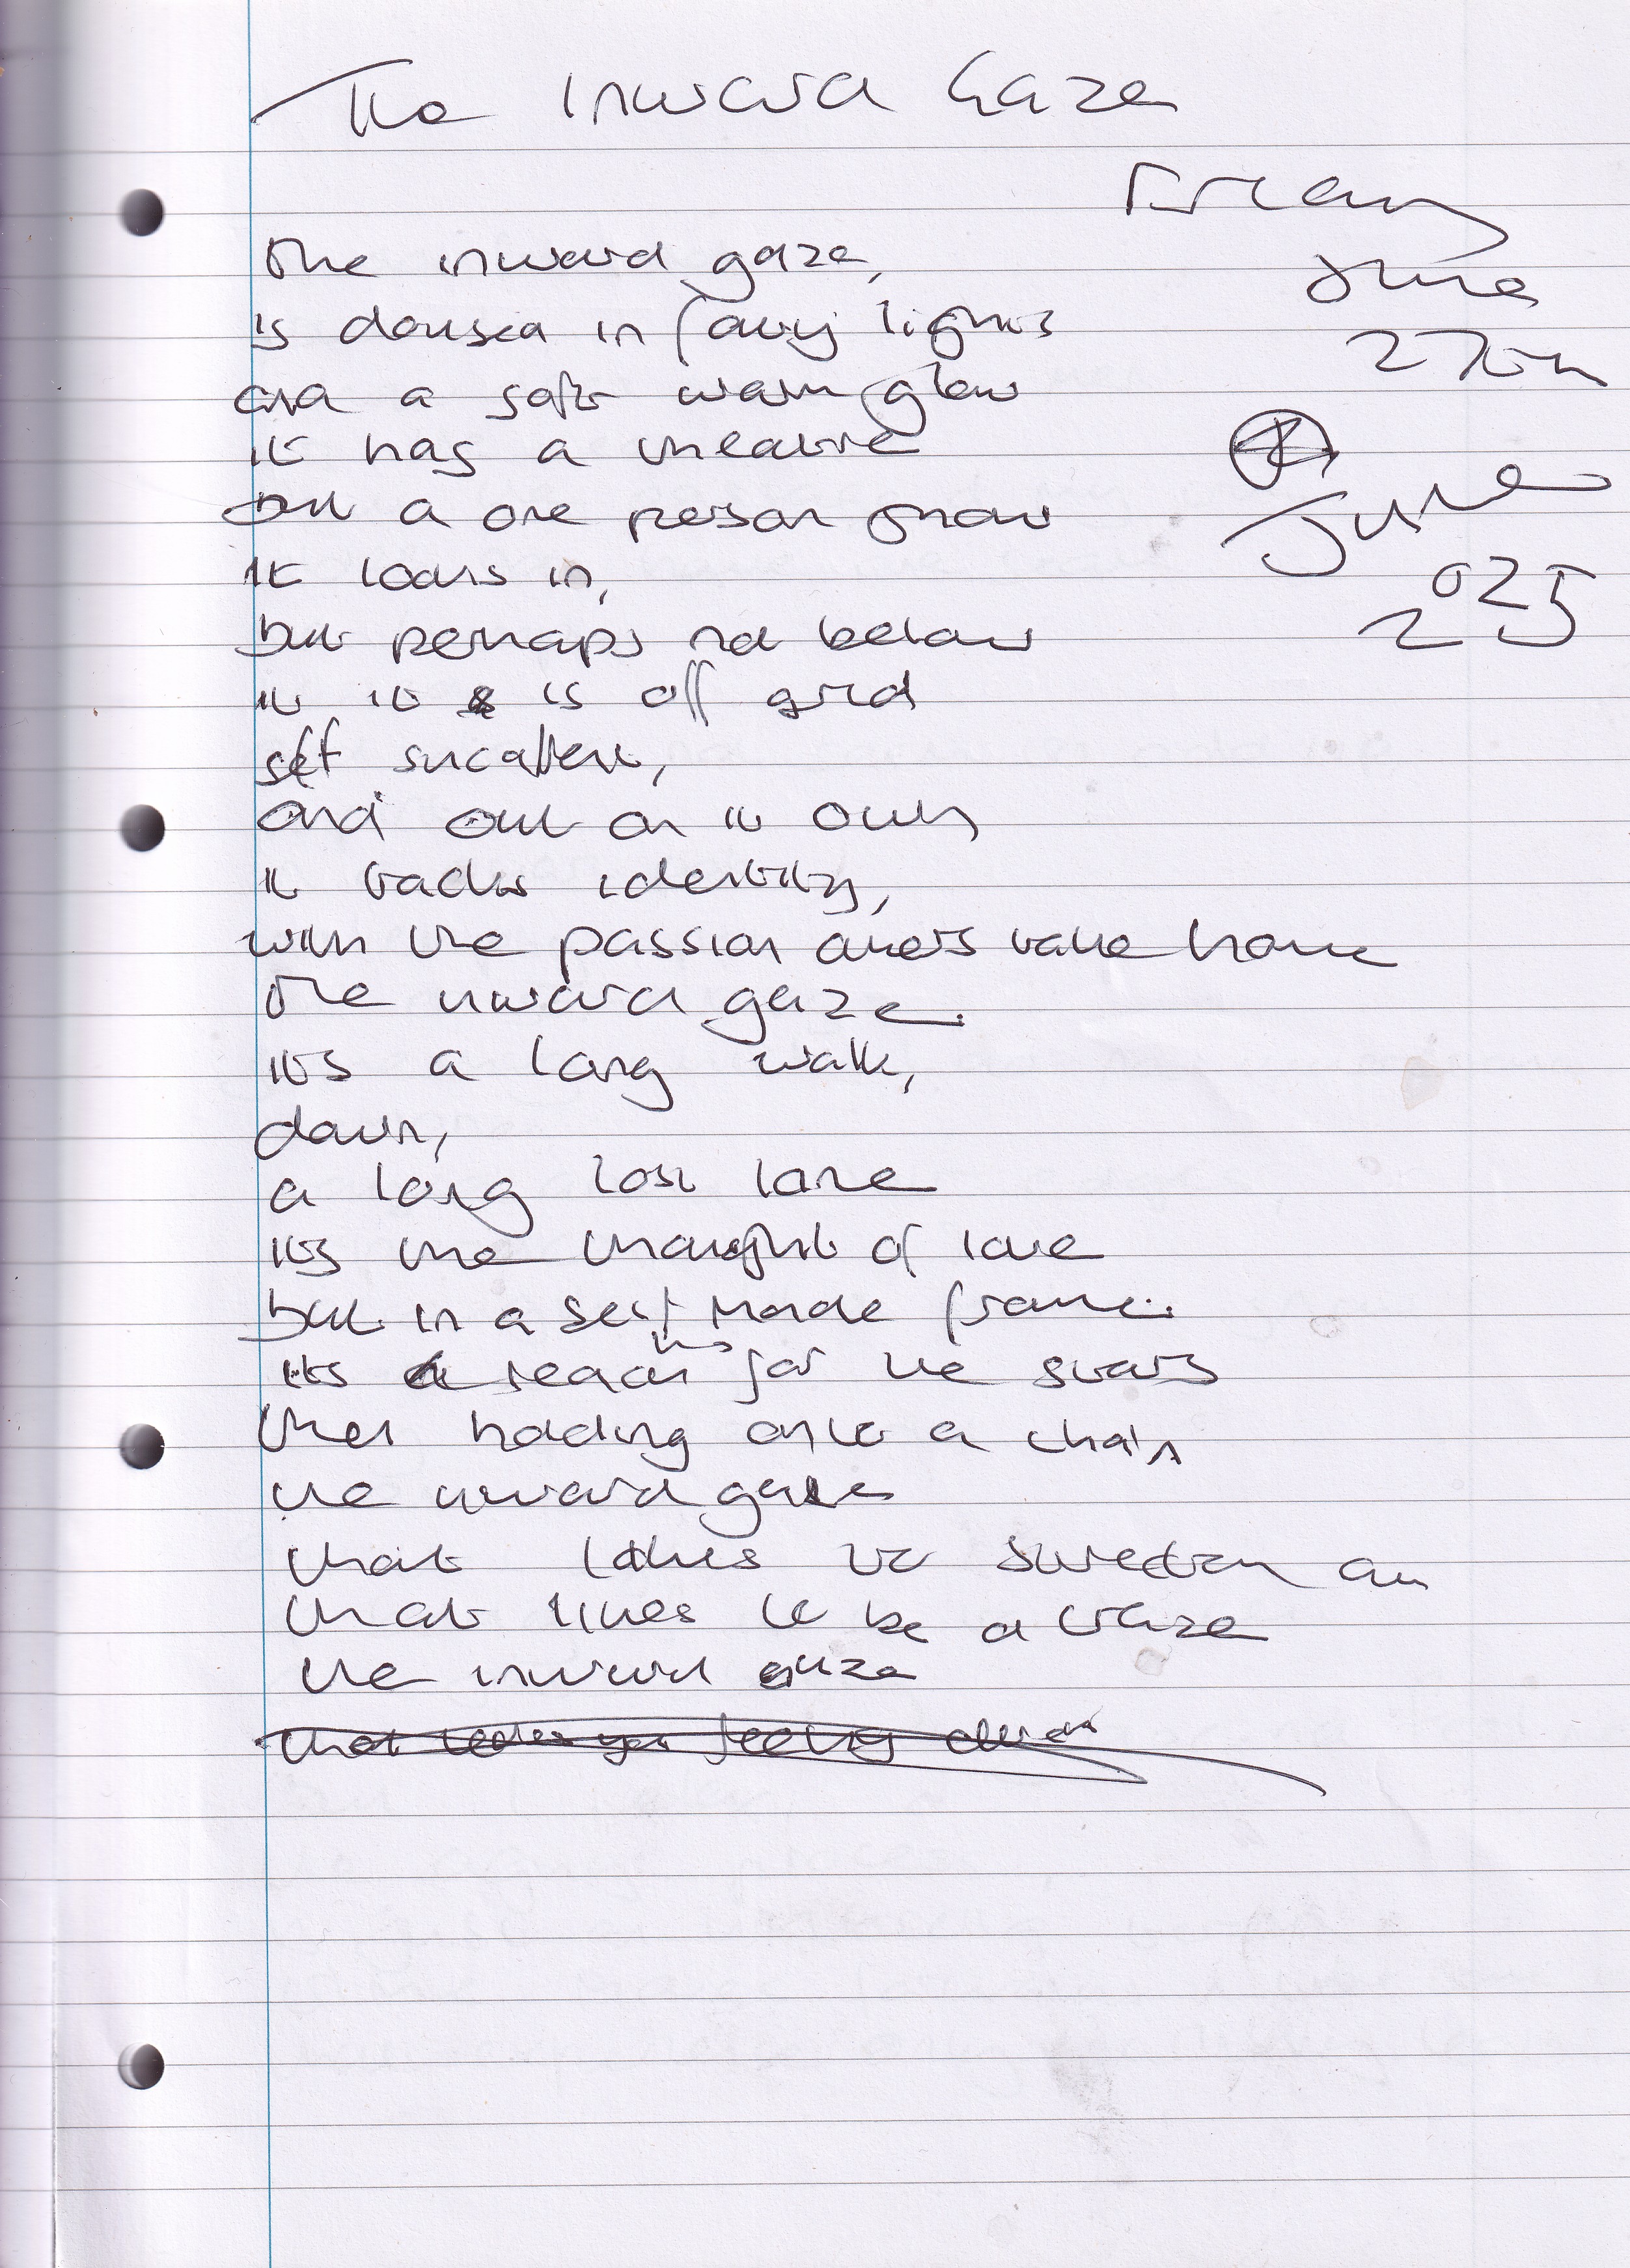 The Inward Gaze
Friday
June
27th
June
2025
The inward gaze,
is doused in fairy lights
and a soft warm glow
it has a theatre
but a one person show
it looks in,
but perhaps not below
it it is off grid
self sufficient,
and out on it own
it tracks identity,
with the passion others take home
The inward gaze.
its a long walk,
down,
a long lost lane
its the thought of love
but in a self made frame.
its reach for the stars
then holding onto a chain
the inward gaze
that likes to sweeten an
that likes to be a craze
the inward gaze